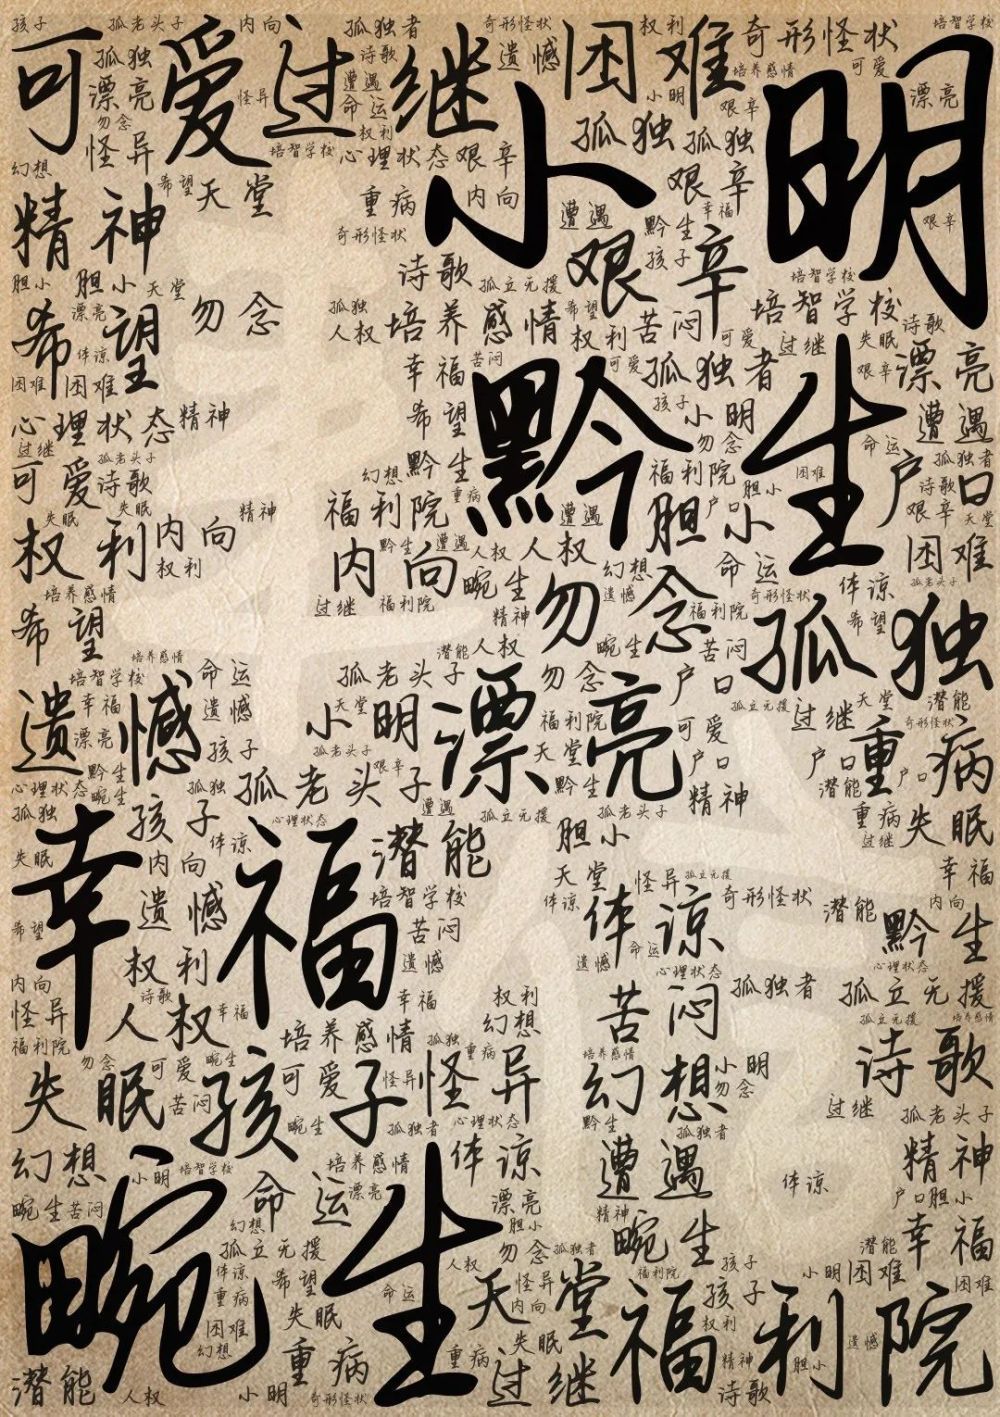 孩子 孤老头子 内向 孤独者 奇形怪状 权利 培智学校
可爱 过继 遗憾 困难 奇形怪状
孤独 诗歌 培养感情 可爱
漂亮 怪异 遭遇 小明 艰辛 漂亮
勿念 命运 权利 孤独 孤独
怪异 培智学校 心理状态 艰辛
幻想 希望 天堂 重病 内向 艰辛 小明
精神 奇形怪状 遭遇 幸福 黔生 艰辛
胆小 胆小 天堂 诗歌 孤立无援 艰辛 孩子 培智学校
希望 漂亮 勿念 孤独 希望 培智学校
体谅 人权 培养感情 权利 苦闷 可爱 过继 失眠 诗歌
困难 困难 幸福 苦闷 可爱 孤独者 艰辛 漂亮
心理状态 精神 希望 黔生 孩子 小明 遭遇
过继 孤老头子 勿念 命运 孤独者
可爱 诗歌 幻想 黔生 重病 福利院 困难 户口 诗歌
失眠 失眠 精神 福利院 遭遇 胆小 户口 胆小 艰辛 天堂
权利 内向 权利 内向 黔生 遭遇 人权 人权 命运 困难
培养感情 过继 福利院 畹生 幻想 遗憾 奇形怪状 体谅 孤老头子
希望 精神 勿念 福利院 孤独 希望
培养感情 潜能 人权 畹生 苦闷
培智学校 命运 孤老头子 勿念 户口 天堂 潜能
遗憾 幸福 遗憾 天堂 小明 漂亮 福利院 可爱 孤立无援 过继 奇形怪状
漂亮 孩子 孤老头子 天堂 户口 户口 重病
黔生 艰辛 黔生 户口
心理状态 畹生 孤独 孤老头子 精神 潜能
孤独 孩子 心理状态 遭遇 孤立无援 孤老头子 重病 失眠
幸福 体谅 潜能 胆小 过继
失眠 内向 天堂 怪异 孤立无援 幸福
遗憾 培智学校 体谅 体谅 奇形怪状 潜能 内向
希望 苦闷 命运 黔生
权利 遗憾 遗憾 心理状态 心理状态
内向 诗歌 幸福 权利 苦闷 孤独者 孤立无援
怪异 人权 幸福 幻想 孤立无援 培养感情
福利院 培养感情 孤独 重病 培养感情 诗歌
勿念 可爱 畹生 小明
失眠 孩子 可爱 怪异 怪异 幻想 勿念
苦闷 畹生 孤独者 心理状态 黔生 过继 孤老头子
孤独者
幻想 小明 培智学校 培养感情 体谅 遭遇 体谅 精神
畹生 苦闷 命运 漂亮 漂亮 精神 户口 胆小
畹生 幻想 胆小 畹生 幸福
孤立无援 人权 勿念 孤独者 潜能
体谅 希望 天堂 怪异 福利院 孩子 小明 困难 困难
重病 命运 内向 福利院 孩子
困难 失眠 失眠 权利 遗憾
幻想 重病 重病 过继 精神 胆小
潜能 人权 小明 奇形怪状 诗歌